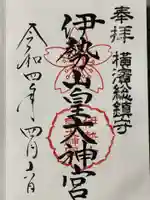 奉拝
横濱総鎮守
伊勢山皇大神宮
令和四年四月六日